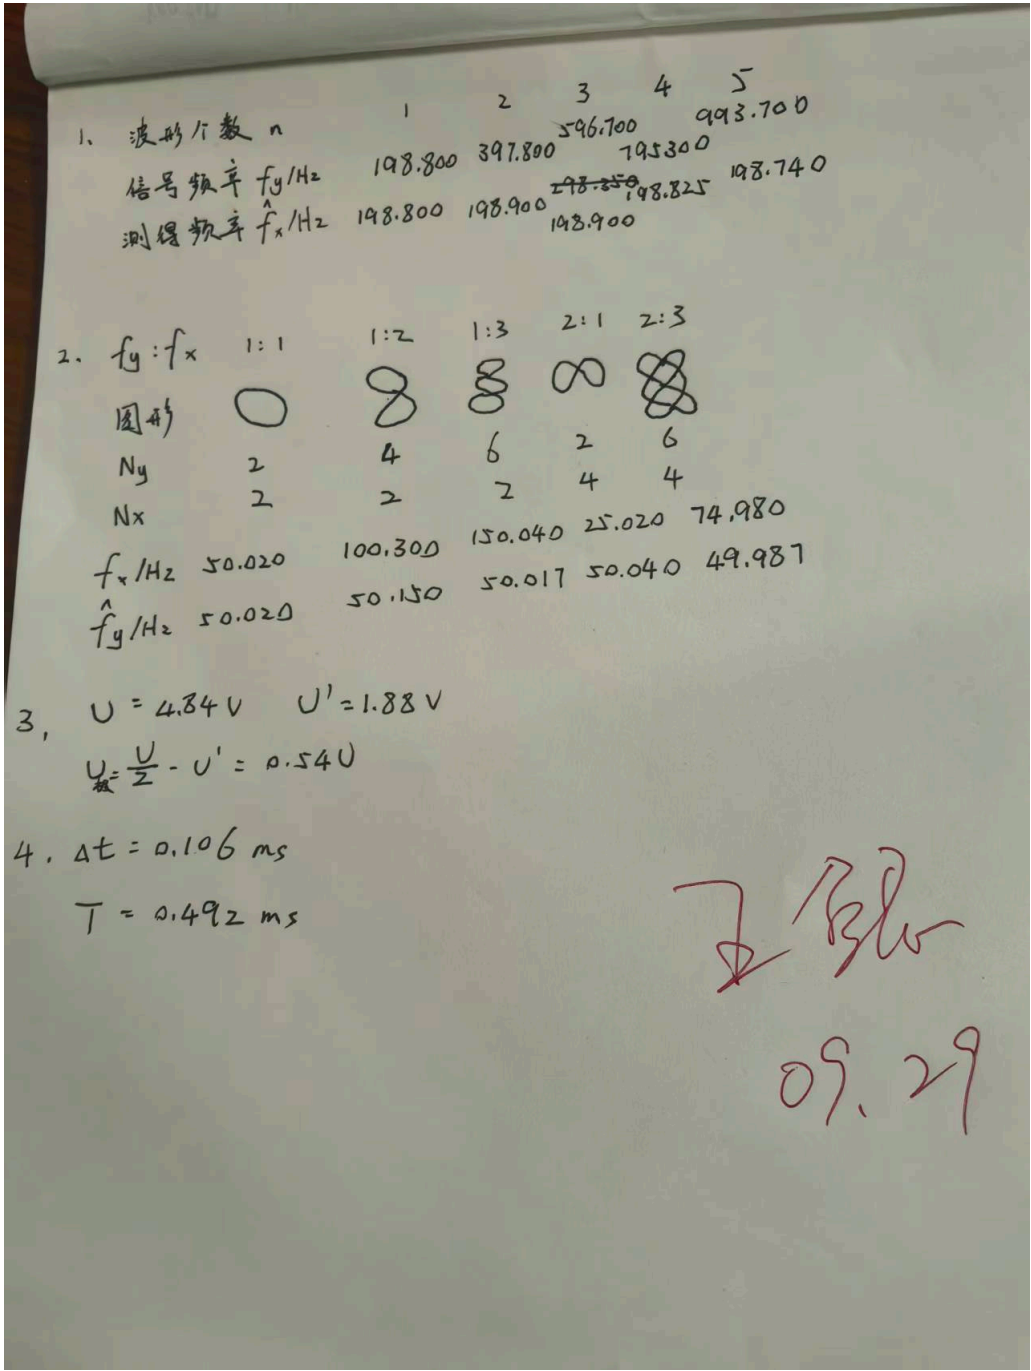 1 2 3 4 5
1、波形个数 n 596.700 993.700
信号频率 fy/Hz 198.800 397.800 795300
测得频率 f̂x/Hz 198.800 198.900 298.350 198.825 198.740
198.900
2. fy:fx 1:1 1:2 1:3 2:1 2:3
图形
Ny 2 4 6 2 6
Nx 2 2 2 4 4
fx/Hz 50.020 100.300 150.040 25.020 74.980
f̂y/Hz 50.020 50.150 50.017 50.040 49.987
3, U = 4.84V U' = 1.88V
= U/2 - U' = 0.54U
4. Δt = 0.106 ms
T = 0.492 ms
09.29